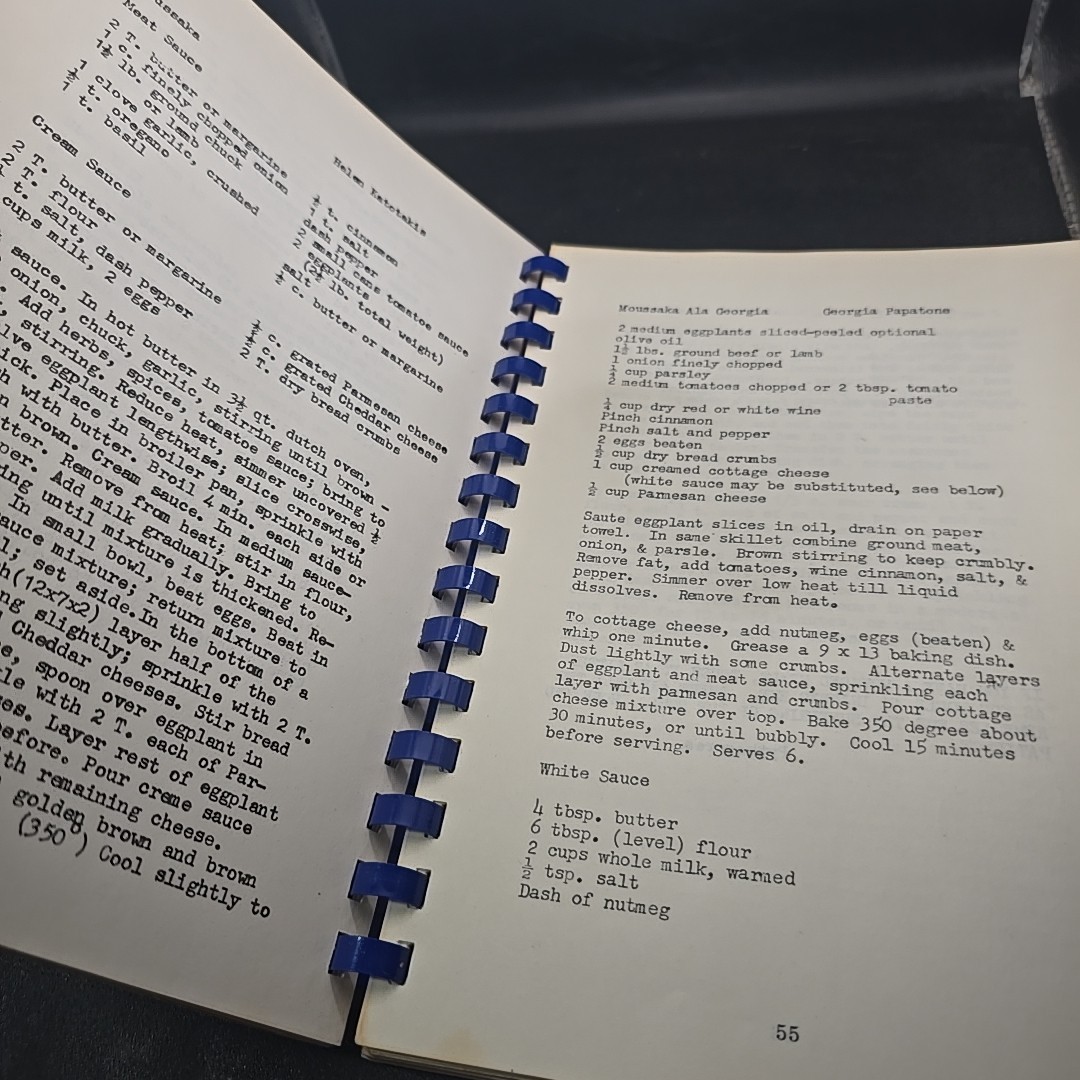 Meat Sauce
Helen Katotakis
2 T. butter or margarine
1 c. finely chopped onion
1½ lb. ground chuck
or lamb
1 clove garlic, crushed
½ t. oregano
1 t. basil
t. cinnamon
1 t. salt
dash pepper
2 small cans tomatoe sauce
2 eggplants
(2½ lb. total weight)
salt
½ c. butter or margarine
Cream Sauce
2 T. butter or margarine
2 T. flour
t. salt, dash pepper
cups milk, 2 eggs
½ c. grated Parmesan cheese
½ c. grated Cheddar cheese
2 T. dry bread crumbs
sauce. In hot butter in 3½ qt. dutch oven,
onion, chuck, garlic, stirring until brown-
Add herbs, spices, tomatoe sauce; bring to
stirring. Reduce heat, simmer uncovered ½
eggplant lengthwise; slice crosswise,
Place in broiler pan, sprinkle with
with butter. Broil 4 min. each side or
brown. Cream sauce. In medium sauce-
Remove from heat; stir in flour,
Add milk gradually. Bring to
until mixture is thickened. Re-
In small bowl, beat eggs. Beat in
mixture; return mixture to
set aside. In the bottom of a
(12x7x2) layer half of the
slightly; sprinkle with 2 T.
Cheddar cheeses. Stir bread
spoon over eggplant in
with 2 T. each of Par-
Layer rest of eggplant
before. Pour creme sauce
remaining cheese.
golden brown and brown
(350°) Cool slightly to
Moussaka Ala Georgia Georgia Papatone
2 medium eggplants sliced-peeled optional
olive oil
1½ lbs. ground beef or lamb
1 onion finely chopped
¼ cup parsley
2 medium tomatoes chopped or 2 tbsp. tomato
paste
¼ cup dry red or white wine
Pinch cinnamon
Pinch salt and pepper
2 eggs beaten
½ cup dry bread crumbs
1 cup creamed cottage cheese
(white sauce may be substituted, see below)
½ cup Parmesan cheese
Saute eggplant slices in oil, drain on paper
towel. In same skillet combine ground meat,
onion, & parsle. Brown stirring to keep crumbly.
Remove fat, add tomatoes, wine cinnamon, salt, &
pepper. Simmer over low heat till liquid
dissolves. Remove from heat.
To cottage cheese, add nutmeg, eggs (beaten) &
whip one minute. Grease a 9 x 13 baking dish.
Dust lightly with some crumbs. Alternate layers
of eggplant and meat sauce, sprinkling each
layer with parmesan and crumbs. Pour cottage
cheese mixture over top. Bake 350 degree about
30 minutes, or until bubbly. Cool 15 minutes
before serving. Serves 6.
White Sauce
4 tbsp. butter
6 tbsp. (level) flour
2 cups whole milk, warmed
½ tsp. salt
Dash of nutmeg
55